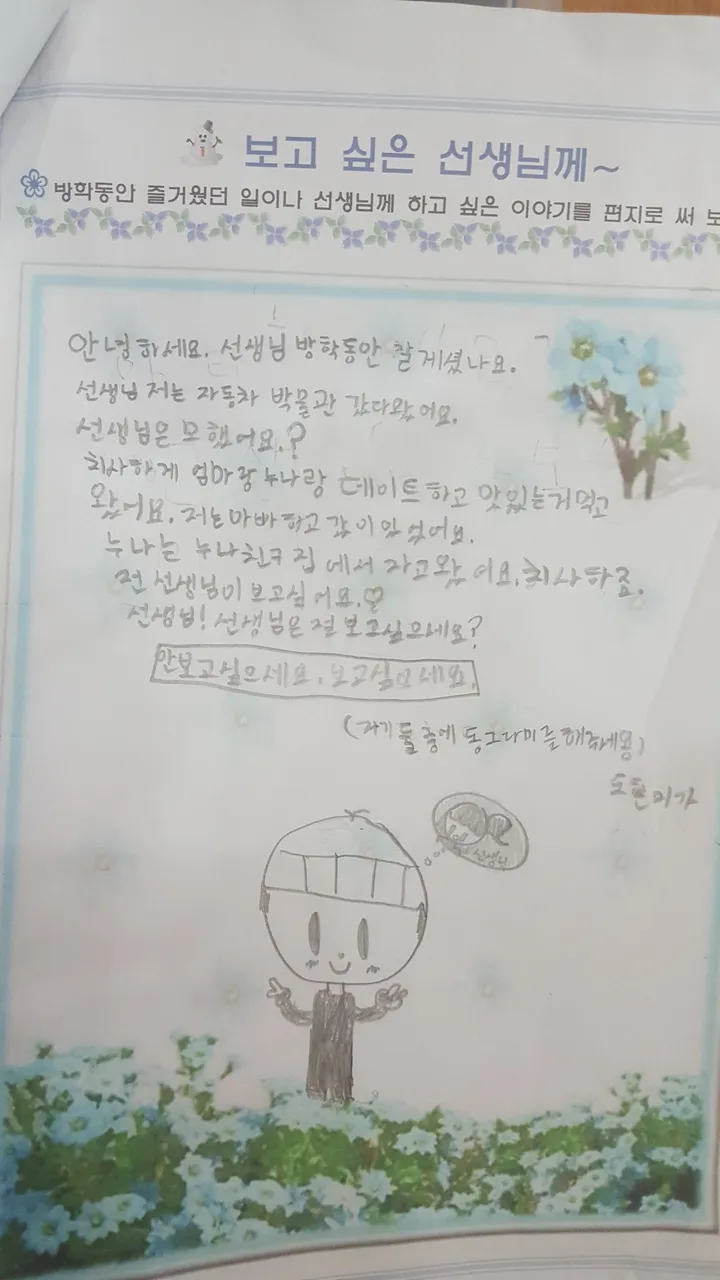 보고 싶은 선생님께~
방학동안 즐거웠던 일이나 선생님께 하고 싶은 이야기를 편지로 써 보
안녕하세요. 선생님 방학동안 잘 계셨나요.
선생님 저는 자동차 박물관 갔다왔어요.
선생님은 모했어요.?
치사하게 엄마랑 누나랑 데이트하고 맛있는거먹고
왔어요. 저는 아빠하고 같이있었어요.
누나는 누나친구 집에서 자고왔어요. 치사하죠.
전 선생님이 보고싶어요.♡
선생님! 선생님은 절 보고싶으세요?
안보고싶으세요. 보고싶으세요.
(자기 둘 중에 동그라미를해주세용)
가
선생님